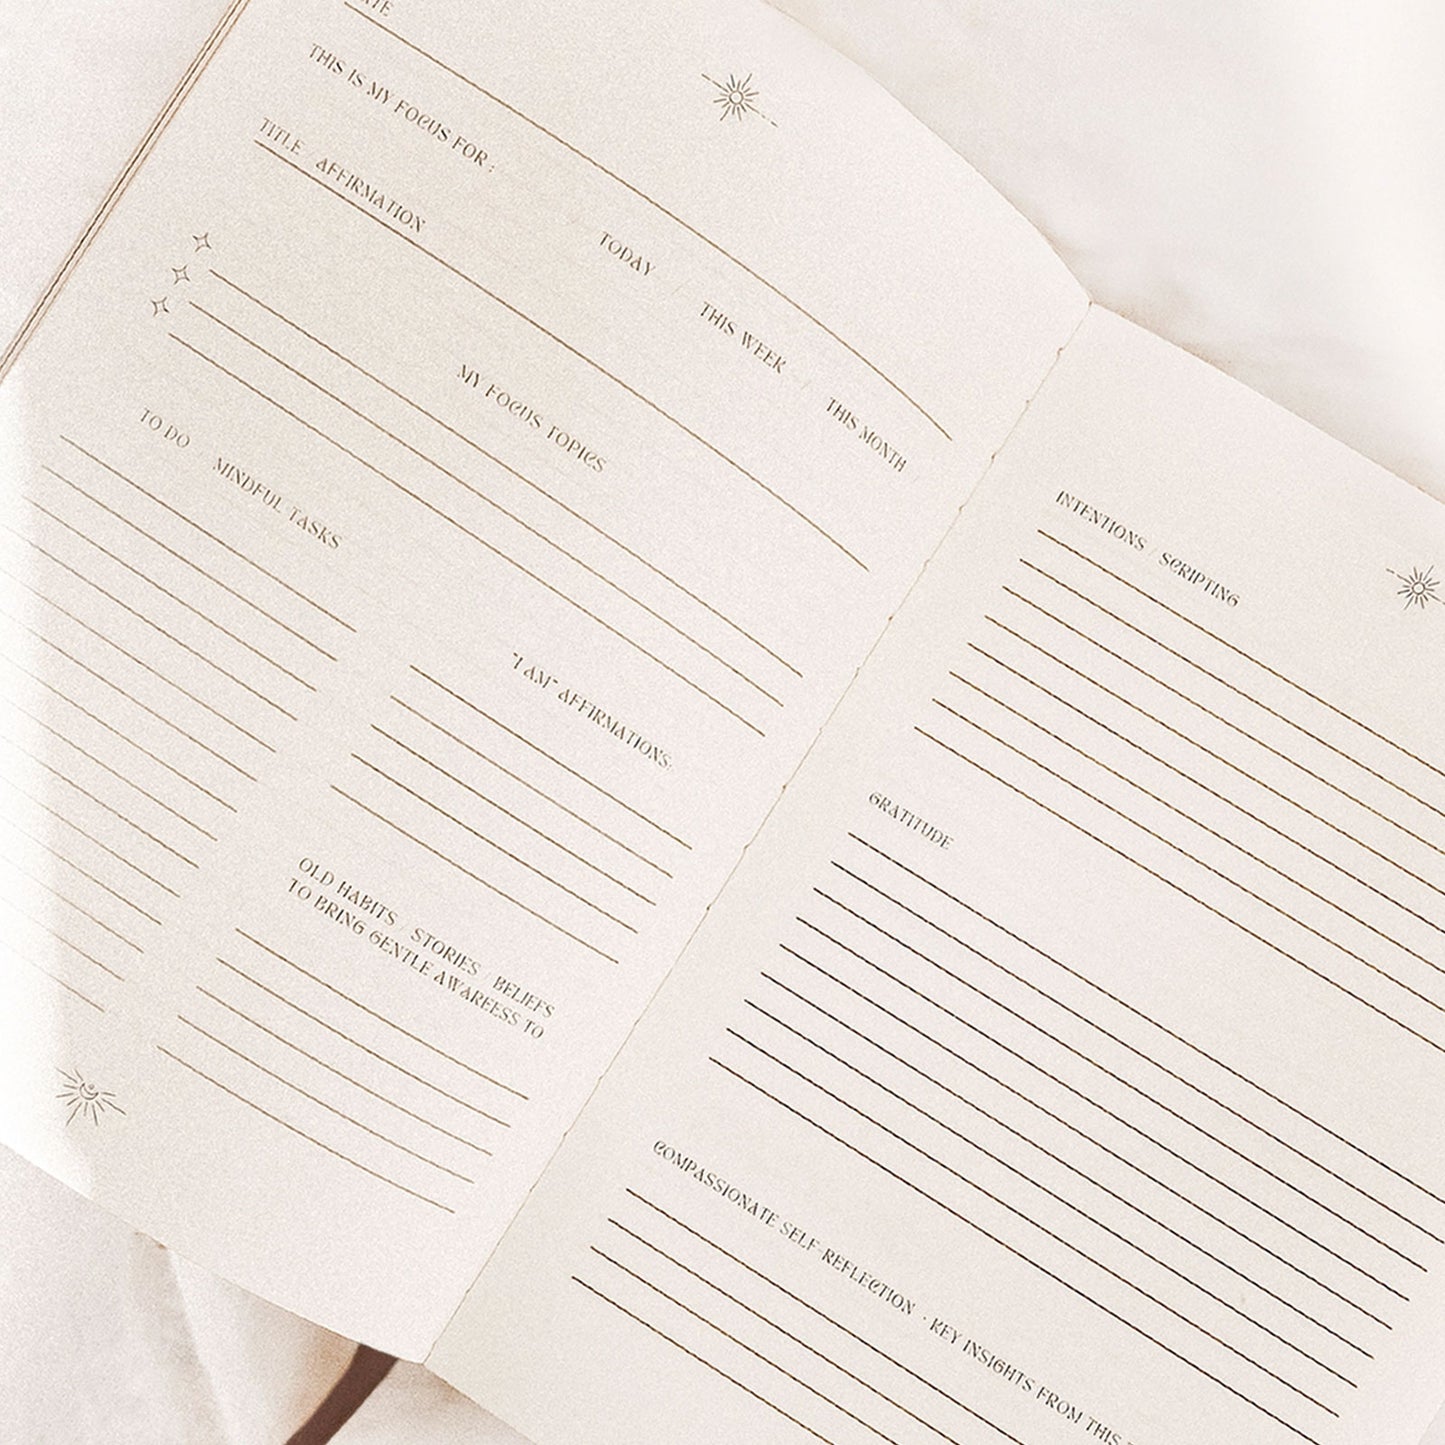 THIS IS MY FOCUS FOR :
TODAY / THIS WEEK / THIS MONTH
TITLE AFFIRMATION
MY FOCUS TOPICS
TO DO
MINDFUL TASKS
"I AM" AFFIRMATIONS:
OLD HABITS / STORIES / BELIEFS
TO BRING GENTLE AWAREESS TO
INTENTIONS / SCRIPTING
GRATITUDE
COMPASSIONATE SELF-REFLECTION · KEY INSIGHTS FROM THIS